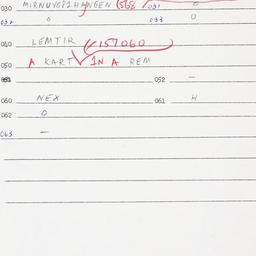 030 MIRNUVGPIHANGEN (568 / 031 O
032 O 033 U
040 LEMTIR (/157060)
050 A KART IN A REM
051 052 —
060 NEX 061 H
062 O
063 —